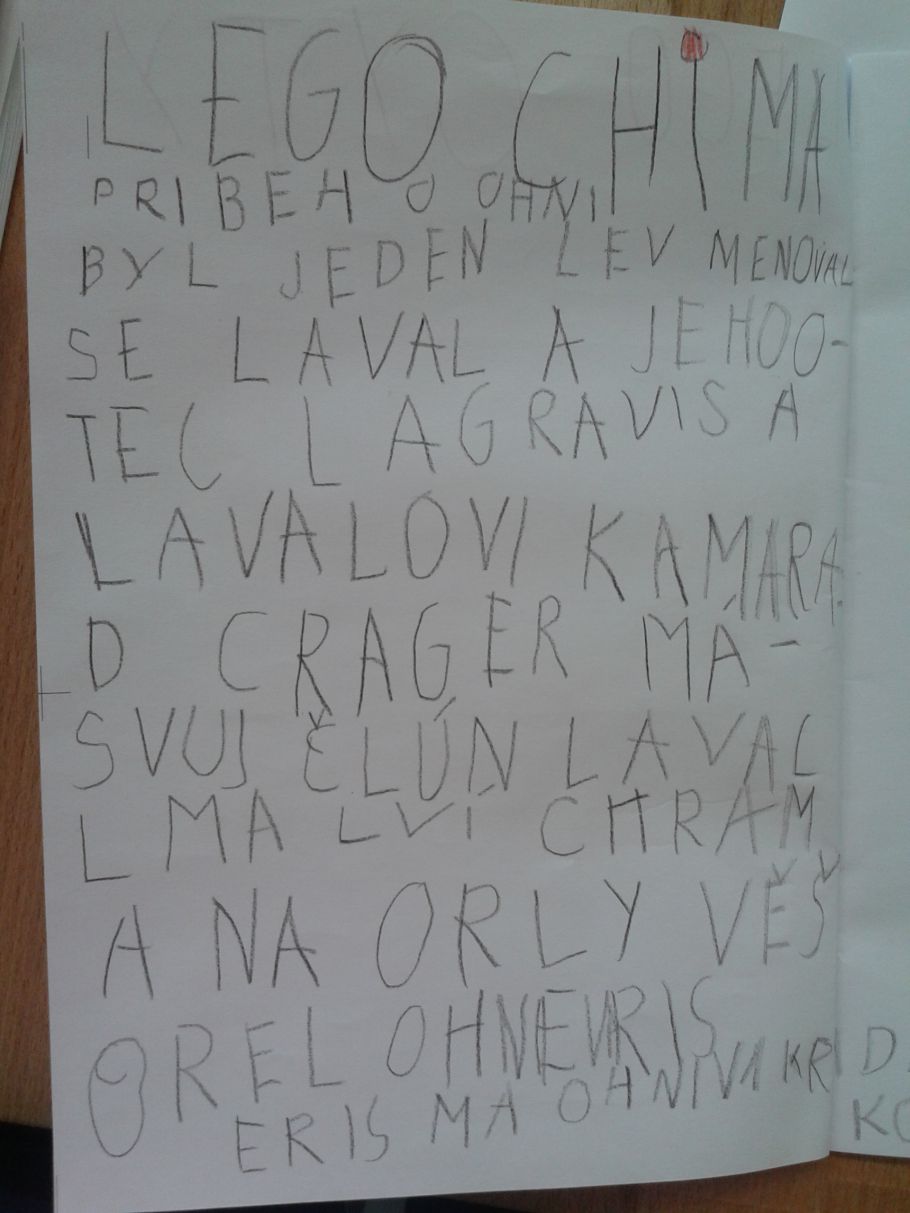 LEGO CHIMA
PRIBEH O OHNI
BYL JEDEN LEV MENOVAL
SE LAVAL A JEHO O-
TEC LAGRAVIS A
LAVALOVI KAMARA
D CRAGER MÁ-
SVUJ ČLÚN LAVAL
L MA LVÍ CHRAM
A NA ORLY VĚŠ
OREL OHNEVRIS
ERIS MA OHNIVA KRID